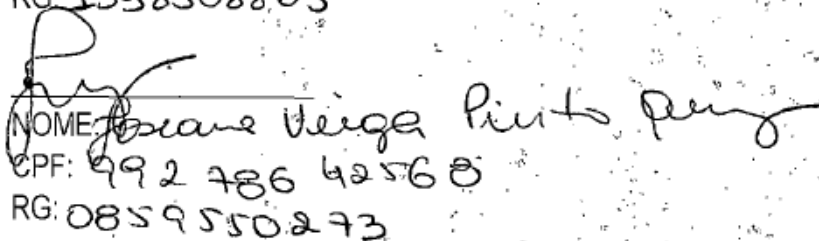 RG: 1558508805
NOME: Joseane Veiga Pinto
CPF: 992 786 42568
RG: 0859550273